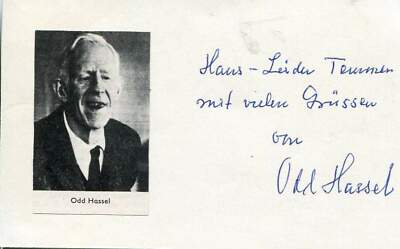 Odd Hassel
Hans-Leider Temmen
mit vielen Grüssen
von
Odd Hassel